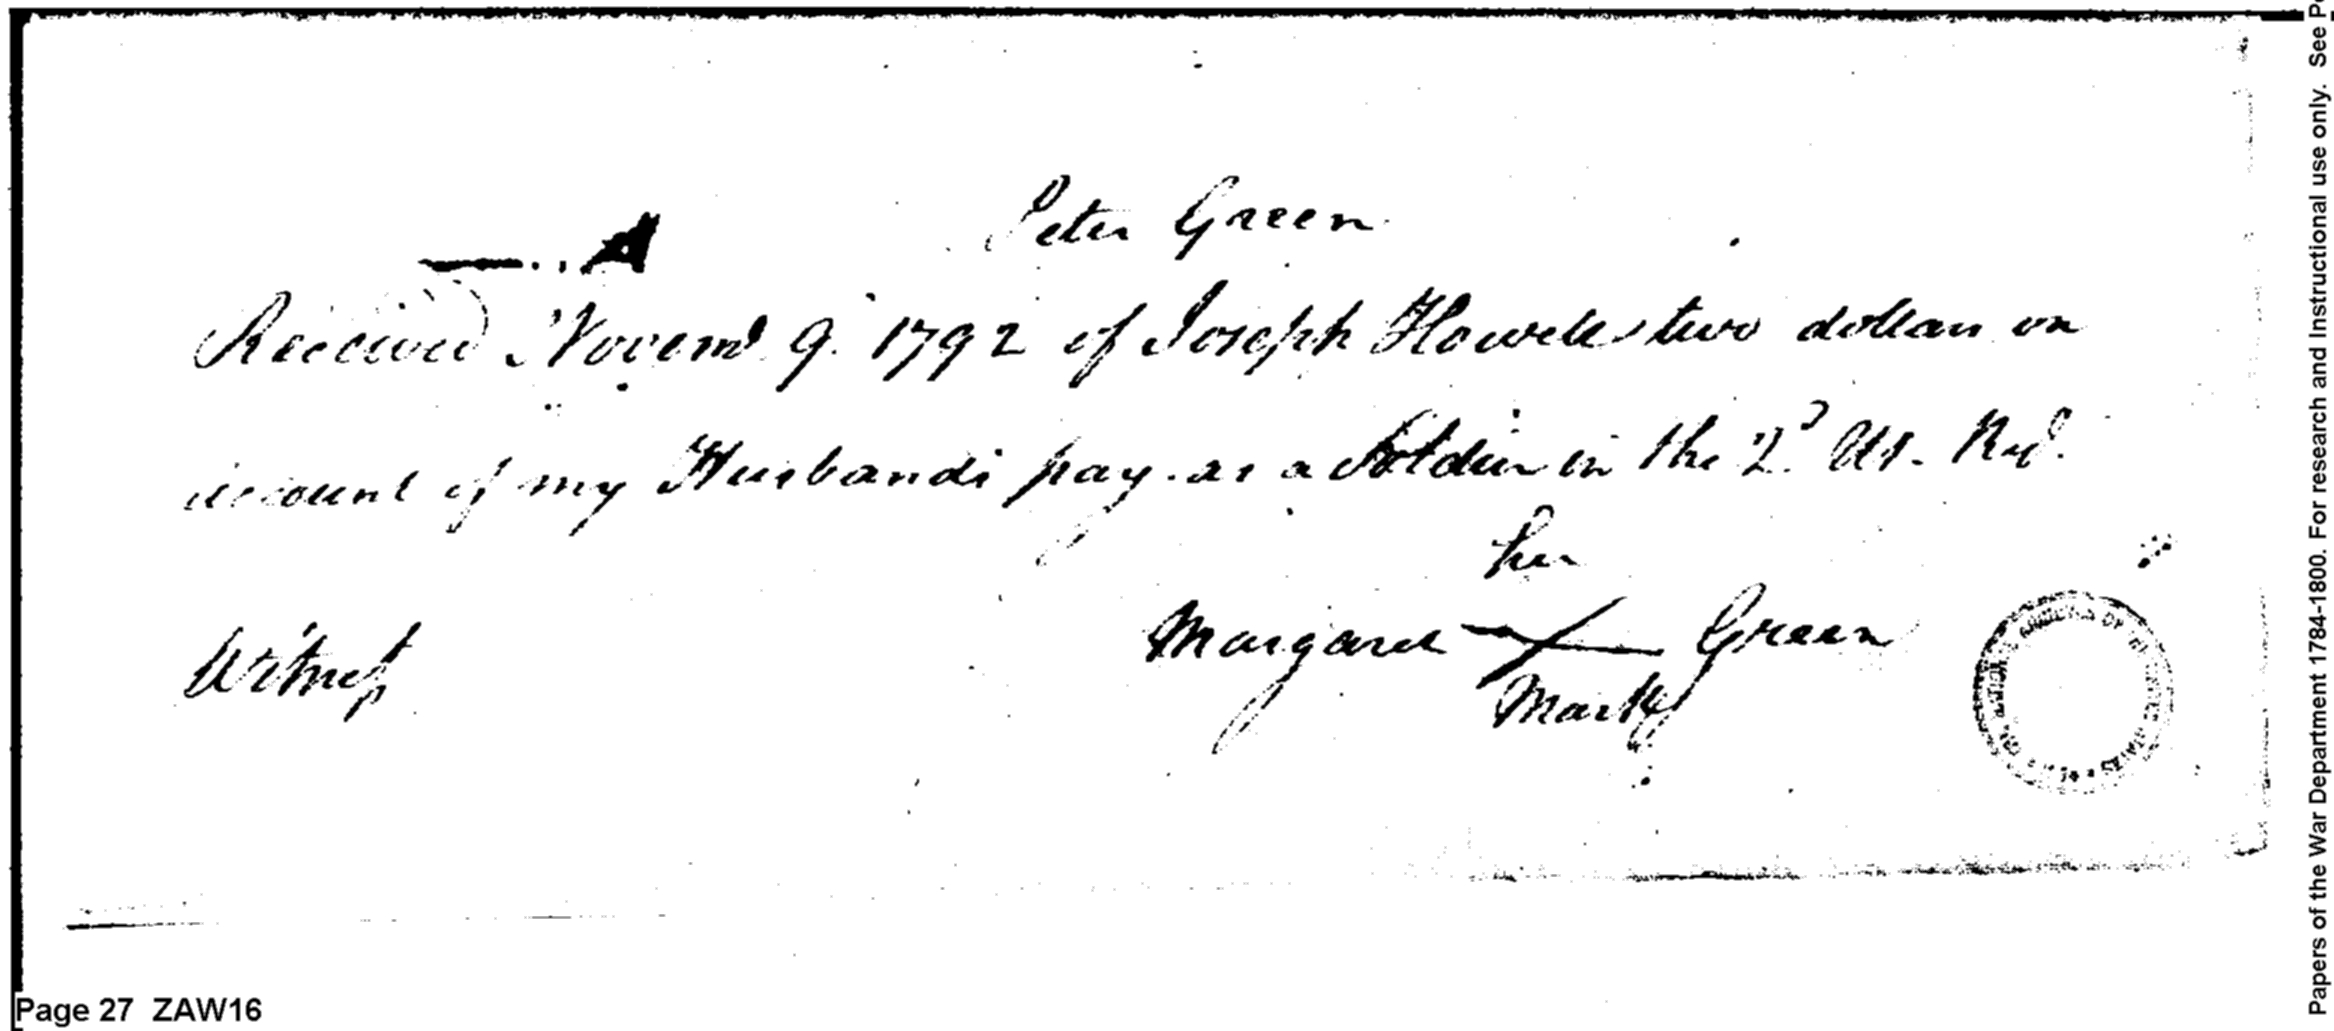 Peter Green
Received Novemr 9. 1792 of Joseph Howell two dollars on
account of my Husbands pay as a Soldier in the 2d US. Regt.
her
Margaret X Green
Mark
Witness
Page 27 ZAW16
Papers of the War Department 1784-1800. For research and Instructional use only. See